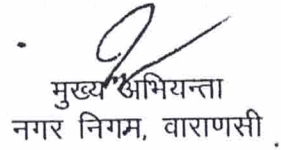 मुख्य अभियन्ता
नगर निगम, वाराणसी